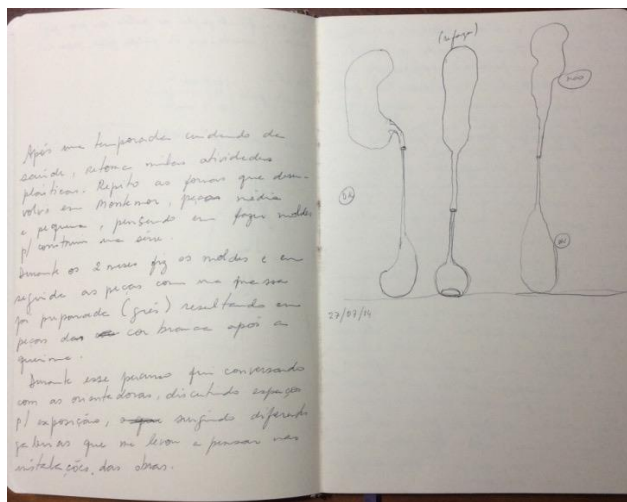 Após uma temporada cuidando da
saúde, retomo minhas atividades
plásticas. Repito as formas que desen-
volvo em Montemor, peças média
e pequena, pensando em fazer moldes
p/ construir uma série.
Durante os 2 meses fiz os moldes e em
seguida as peças com uma massa
já preparada (grés) resultando em
peças da cor branca após a
queima.
Durante esse percurso fui conversando
com as orientadoras, discutindo espaços
p/ exposição, surgindo diferentes
galerias que me levam a pensar nas
instalações das obras.
27/07/14